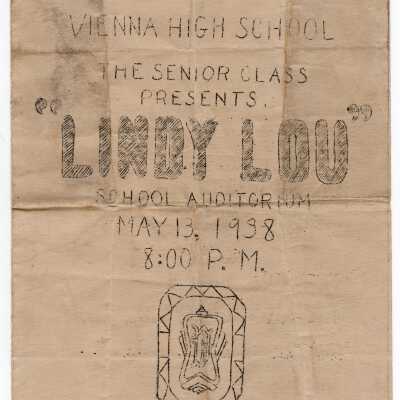 VIENNA HIGH SCHOOL
THE SENIOR CLASS
PRESENTS.
"LINDY LOU"
SCHOOL AUDITORIUM
MAY 13, 1938
8:00 P. M.